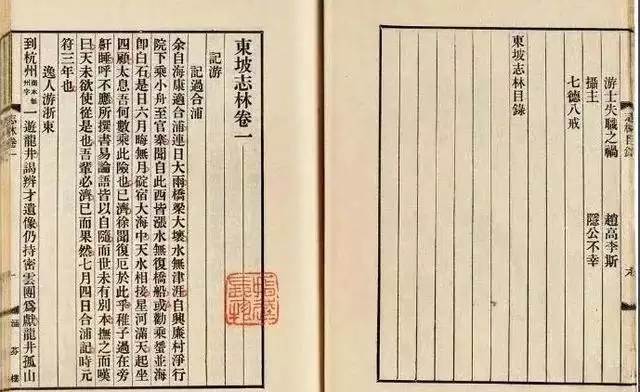 志林目錄
游士失職之禍　趙高李斯
攝主　隱公不幸
七德八戒
東坡志林目錄
東坡志林卷一
記游
記過合浦
余自海康適合浦連日大雨橋梁大壞水無津涯自興廉村淨行
院下乘小舟至官寨聞自此西皆漲水無復橋船或勸乘蜑並海
卽白石是日六月晦無月碇宿大海中天水相接星河滿天起坐
四顧太息吾何數乘此險也已濟徐聞復厄於此乎稚子過在旁
鼾睡呼不應所撰書易論語皆以自隨而世未有別本撫之而嘆
曰天未欲使從是也吾輩必濟已而果然七月四日合浦記時元
符三年也
逸人游浙東
到杭州本無州字一遊龍井謁辨才遺像仍持密雲團爲獻龍井孤山
志林卷一
一
涵芬樓